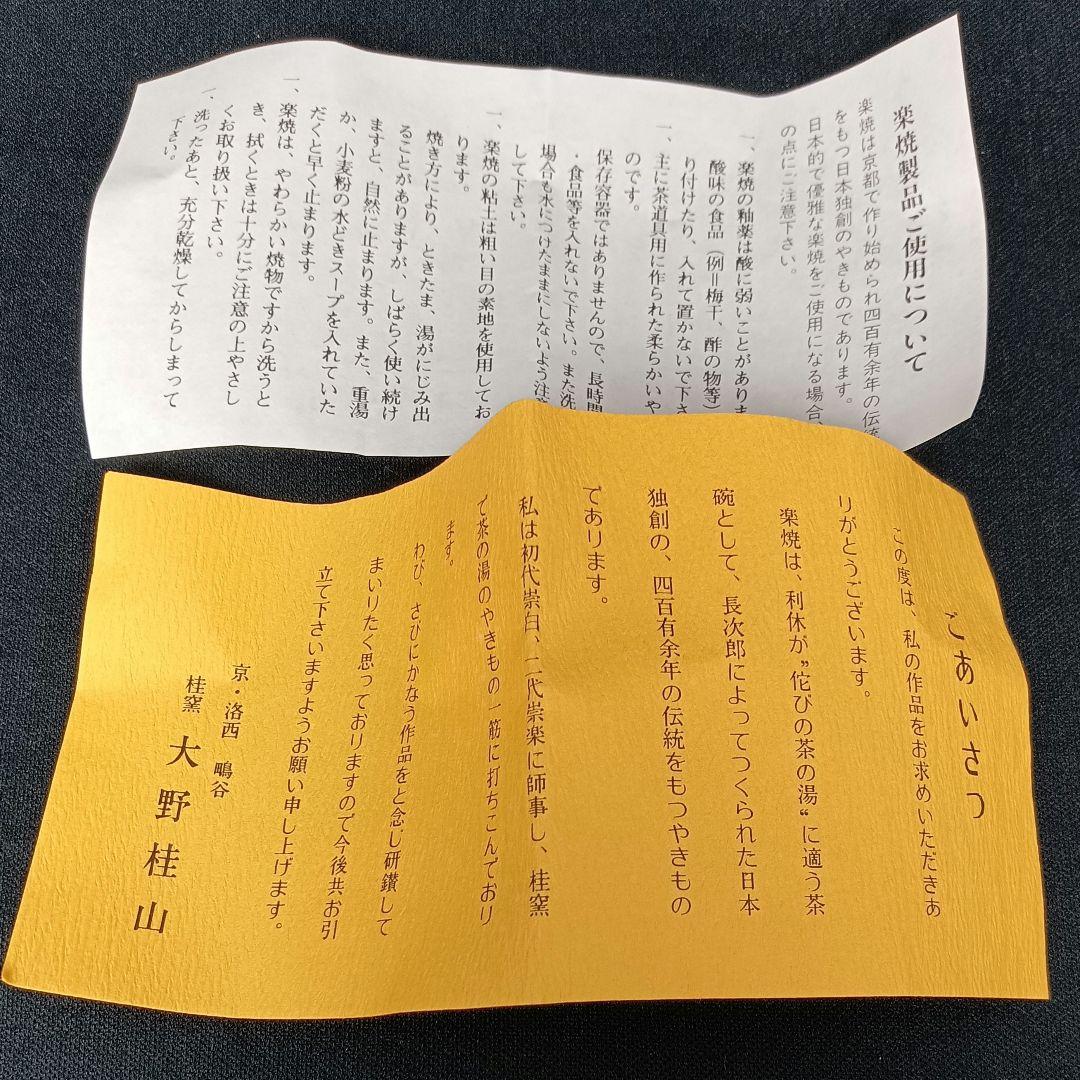 楽焼製品ご使用について
楽焼は京都で作り始められ四百有余年の伝統
をもつ日本独創のやきものであります。
日本的で優雅な楽焼をご使用になる場合、
の点にご注意下さい。
一、楽焼の釉薬は酸に弱いことがありま
酸味の食品（例＝梅干、酢の物等）
り付けたり、入れて置かないで下さ
一、主に茶道具用に作られた柔らかいや
のです。
保存容器ではありませんので、長時間
・食品等を入れないで下さい。また洗
場合も水につけたままにしないよう注
して下さい。
一、楽焼の粘土は粗い目の素地を使用してお
ります。
焼き方により、ときたま、湯がにじみ出
ることがありますが、しばらく使い続け
ますと、自然に止まります。また、重湯
か、小麦粉の水どきスープを入れていた
だくと早く止まります。
一、楽焼は、やわらかい焼物ですから洗うと
き、拭くときは十分にご注意の上やさし
くお取り扱い下さい。
一、洗ったあと、充分乾燥してからしまって
下さい。
ごあいさつ
この度は、私の作品をお求めいただきあ
りがとうございます。
楽焼は、利休が〝侘びの茶の湯〟に適う茶
碗として、長次郎によってつくられた日本
独創の、四百有余年の伝統をもつやきもの
であります。
私は初代崇白、二代崇楽に師事し、桂窯
で茶の湯のやきもの一筋に打ちこんでおり
ます。
わび、さびにかなう作品をと念じ研鑽して
まいりたく思っておりますので今後共お引
立て下さいますようお願い申し上げます。
京・洛西 鴫谷
桂窯 大野桂山